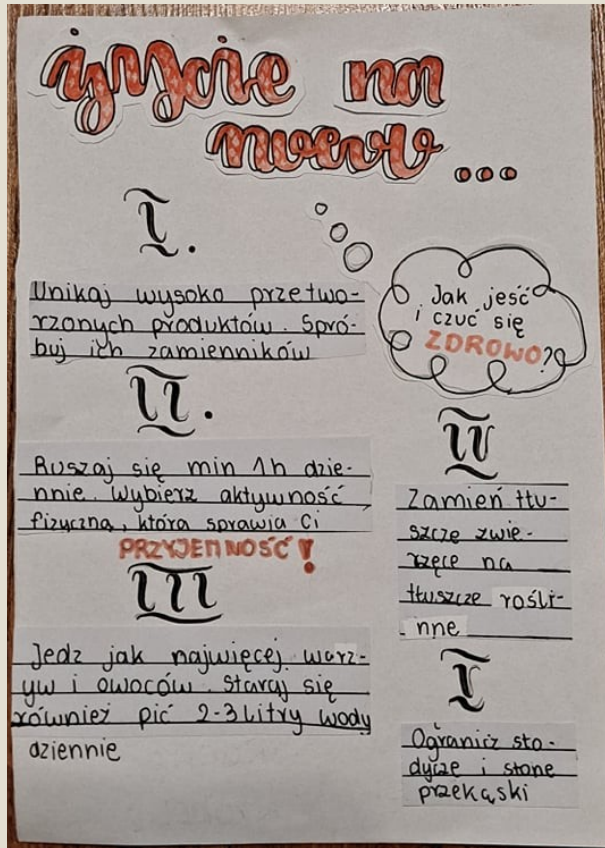 życie na
nowo...
Jak jeść
i czuć się
ZDROWO?
I.
Unikaj wysoko przetwo-
rzonych produktów. Spró-
buj ich zamienników
II.
Ruszaj się min 1h dzie-
nnie. Wybierz aktywność
fizyczną, która sprawia Ci
PRZYJEMNOŚĆ!
III
Jedz jak najwięcej warz-
yw i owoców. Staraj się
również pić 2-3 litry wody
dziennie
IV
Zamień tłu-
szcze zwie-
rzęce na
tłuszcze rośli-
nne
V
Ogranicz sło-
dycze i słone
przekąski